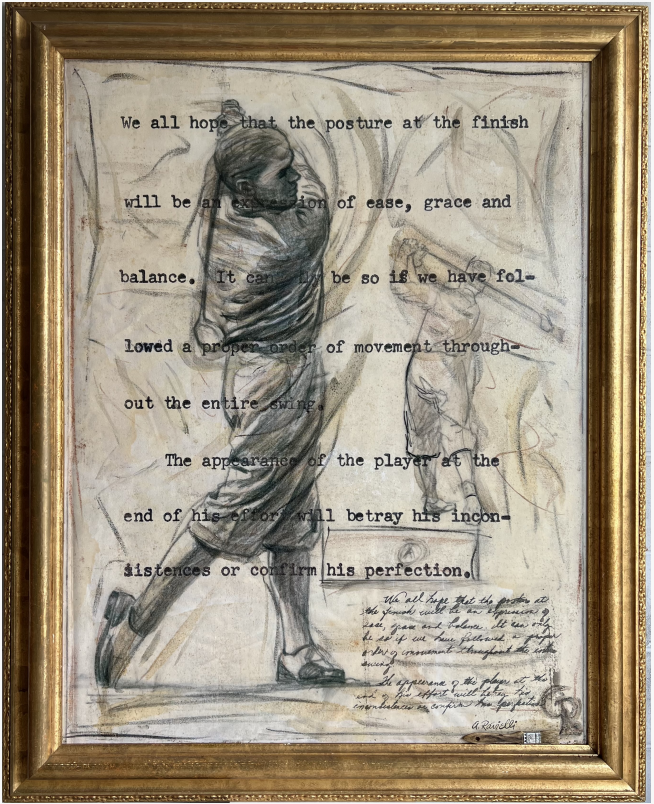 We all hope that the posture at the finish
will be an expression of ease, grace and
balance. It can only be so if we have fol-
lowed a proper order of movement through-
out the entire swing.
The appearance of the player at the
end of his effort will betray his incon-
sistences or confirm his perfection.
A
We all hope that the posture at
the finish will be an expression of
ease, grace and balance. It can only
be so if we have followed a proper
order of movement throughout the entire
swing.
The appearance of the player at the
end of his effort will betray his
inconsistences or confirm his perfection.
A. Ravielli